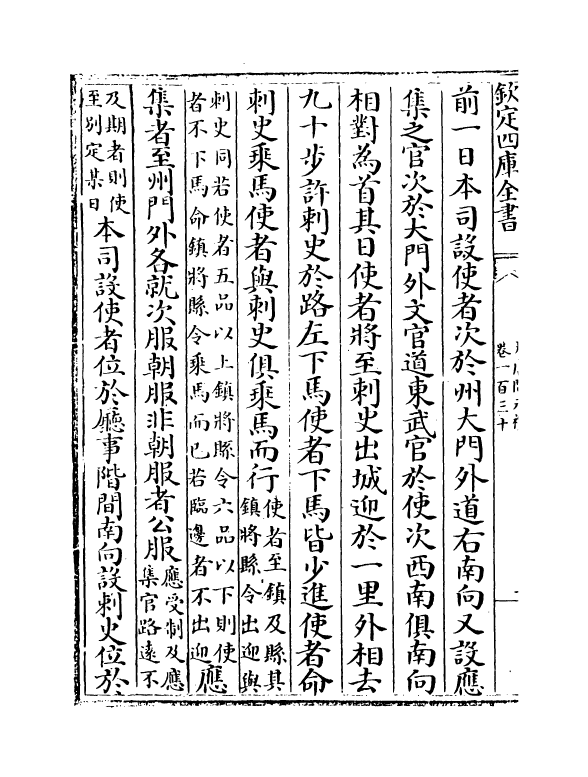 欽定四庫全書
卷一百三十
前一日本司設使者次於州大門外道右南向又設應
集之官次於大門外文官道東武官於使次西南俱南向
相對為首其日使者將至刺史出城迎於一里外相去
九十步許刺史於路左下馬使者下馬皆少進使者命
刺史乘馬使者與刺史俱乘馬而行使者至鎮及縣其
鎮將縣令出迎與
刺史同若使者五品以上鎮將縣令六品以下則使
者不下馬命鎮將縣令乘馬而已若臨邊者不出迎應
集者至州門外各就次服朝服非朝服者公服應受制及應
集官路遠不
及期者則使
至別定某日本司設使者位於廳事階間南向設刺史位於